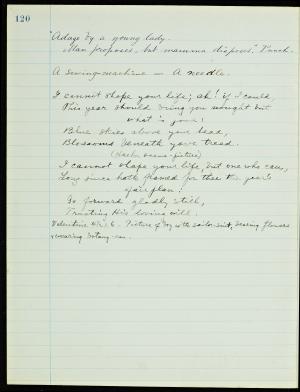 120
"Adage by a young lady.
Man proposes, but mamma disposes". Punch.
A Sewing-machine — A needle.
I cannot shape your life; ah! if I could,
This year should bring you nought but
what is good!
Blue skies above your head,
Blossoms beneath your tread.
I cannot shape your life, but one who can,
Long since hath planned for thee the year's
fair plan!
Go forward gladly still,
Trusting His loving will.
Valentine Picture of boy with sailor-suit, flowers
& wearing